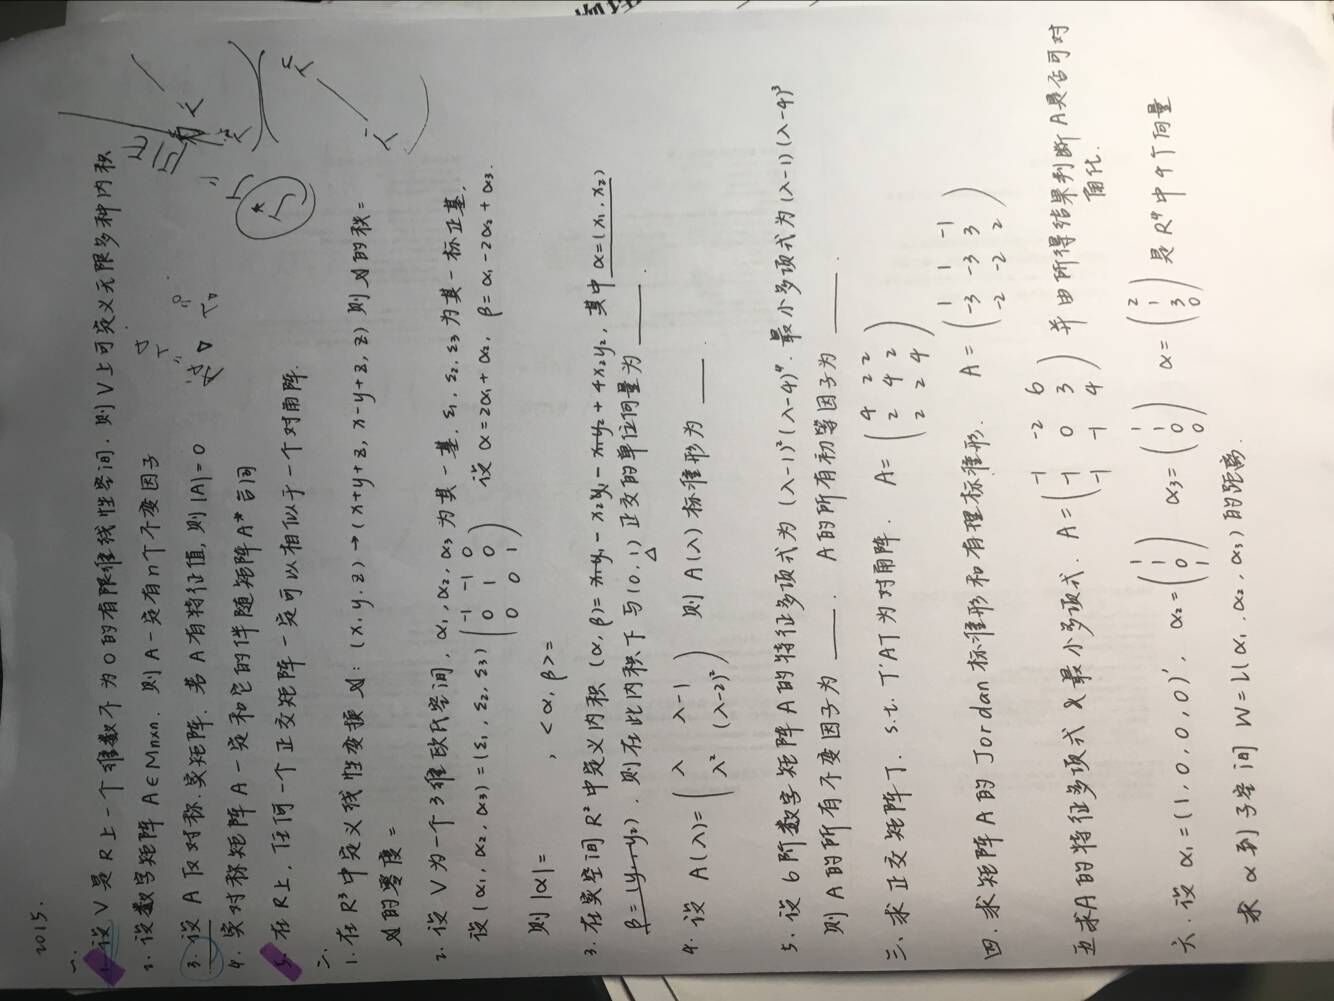 2015.
一.
1. 设V是R上一个维数不为0的有限维线性空间, 则V上可定义无限多种内积
2. 设数字矩阵A∈Mnxn. 则A一定有n个不变因子
3. 设A反对称实矩阵. 若A有特征值, 则|A|=0
4. 实对称矩阵A一定和它的伴随矩阵A*合同
5. 在R上, 任何一个正交矩阵一定可以相似于一个对角阵.
二.
1. 在R³中定义线性变换𝒜: (x, y, z) → (x+y+z, x-y+z, z) 则𝒜的秩=
𝒜的零度=
2. 设V为一个3维欧氏空间, α₁, α₂, α₃为其一基. ε₁, ε₂, ε₃为其一标正基.
设(α₁, α₂, α₃)=(ε₁, ε₂, ε₃) (-1 -1 0
0 1 0
0 0 1) 设α=2α₁+α₂, β=α₁-2α₂+α₃.
则|α|= , <α, β>=
3. 在实空间R²中定义内积(α, β)=x₁y₁-x₂y₁-x₁y₂+4x₂y₂, 其中α=(x₁, x₂)
β=(y₁, y₂). 则在此内积下与(0, 1)正交的单位向量为 ____.
4. 设 A(λ)= (λ λ-1
λ² (λ-2)²) 则A(λ)标准形为 ____.
5. 设6阶数字矩阵A的特征多项式为(λ-1)²(λ-4)⁴. 最小多项式为(λ-1)(λ-4)³
则A的所有不变因子为 ____. A的所有初等因子为 ____.
三. 求正交矩阵T. s.t. T'AT为对角阵. A= (4 2 2
2 4 2
2 2 4)
四. 求矩阵A的Jordan标准形和有理标准形. A= (1 1 -1
-3 -3 3
-2 -2 2)
五. 求A的特征多项式及最小多项式. A= (-1 -2 6
-1 0 3
-1 -1 4) 并由所得结果判断A是否可对
角化.
六. 设α₁=(1, 0, 0, 0)', α₂= (1
1
0
1) α₃= (1
1
0
0) α= (2
1
3
0) 是R⁴中4个向量
求α到子空间W=L(α₁, α₂, α₃)的距离.